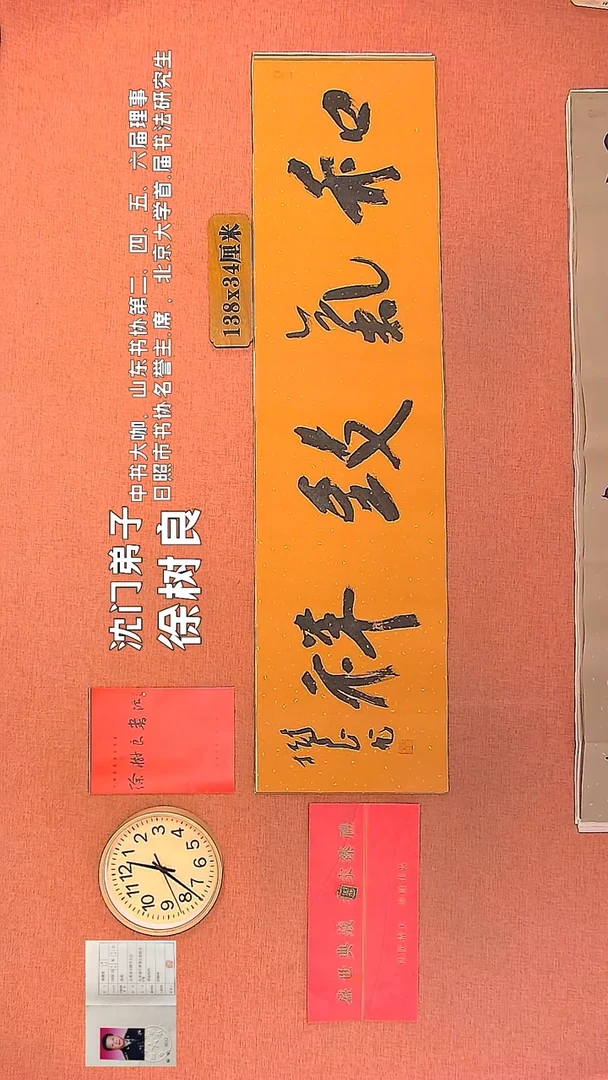 沈门弟子
徐树良
中书大咖、山东书协第二、四、五、六届理事
日照市书协名誉主席、北京大学首届书法研究生
138x34厘米
和氣致祥
徐樹良書法
12 1 2 3 4 5 6 7 8 9 10 11
盛世典藏